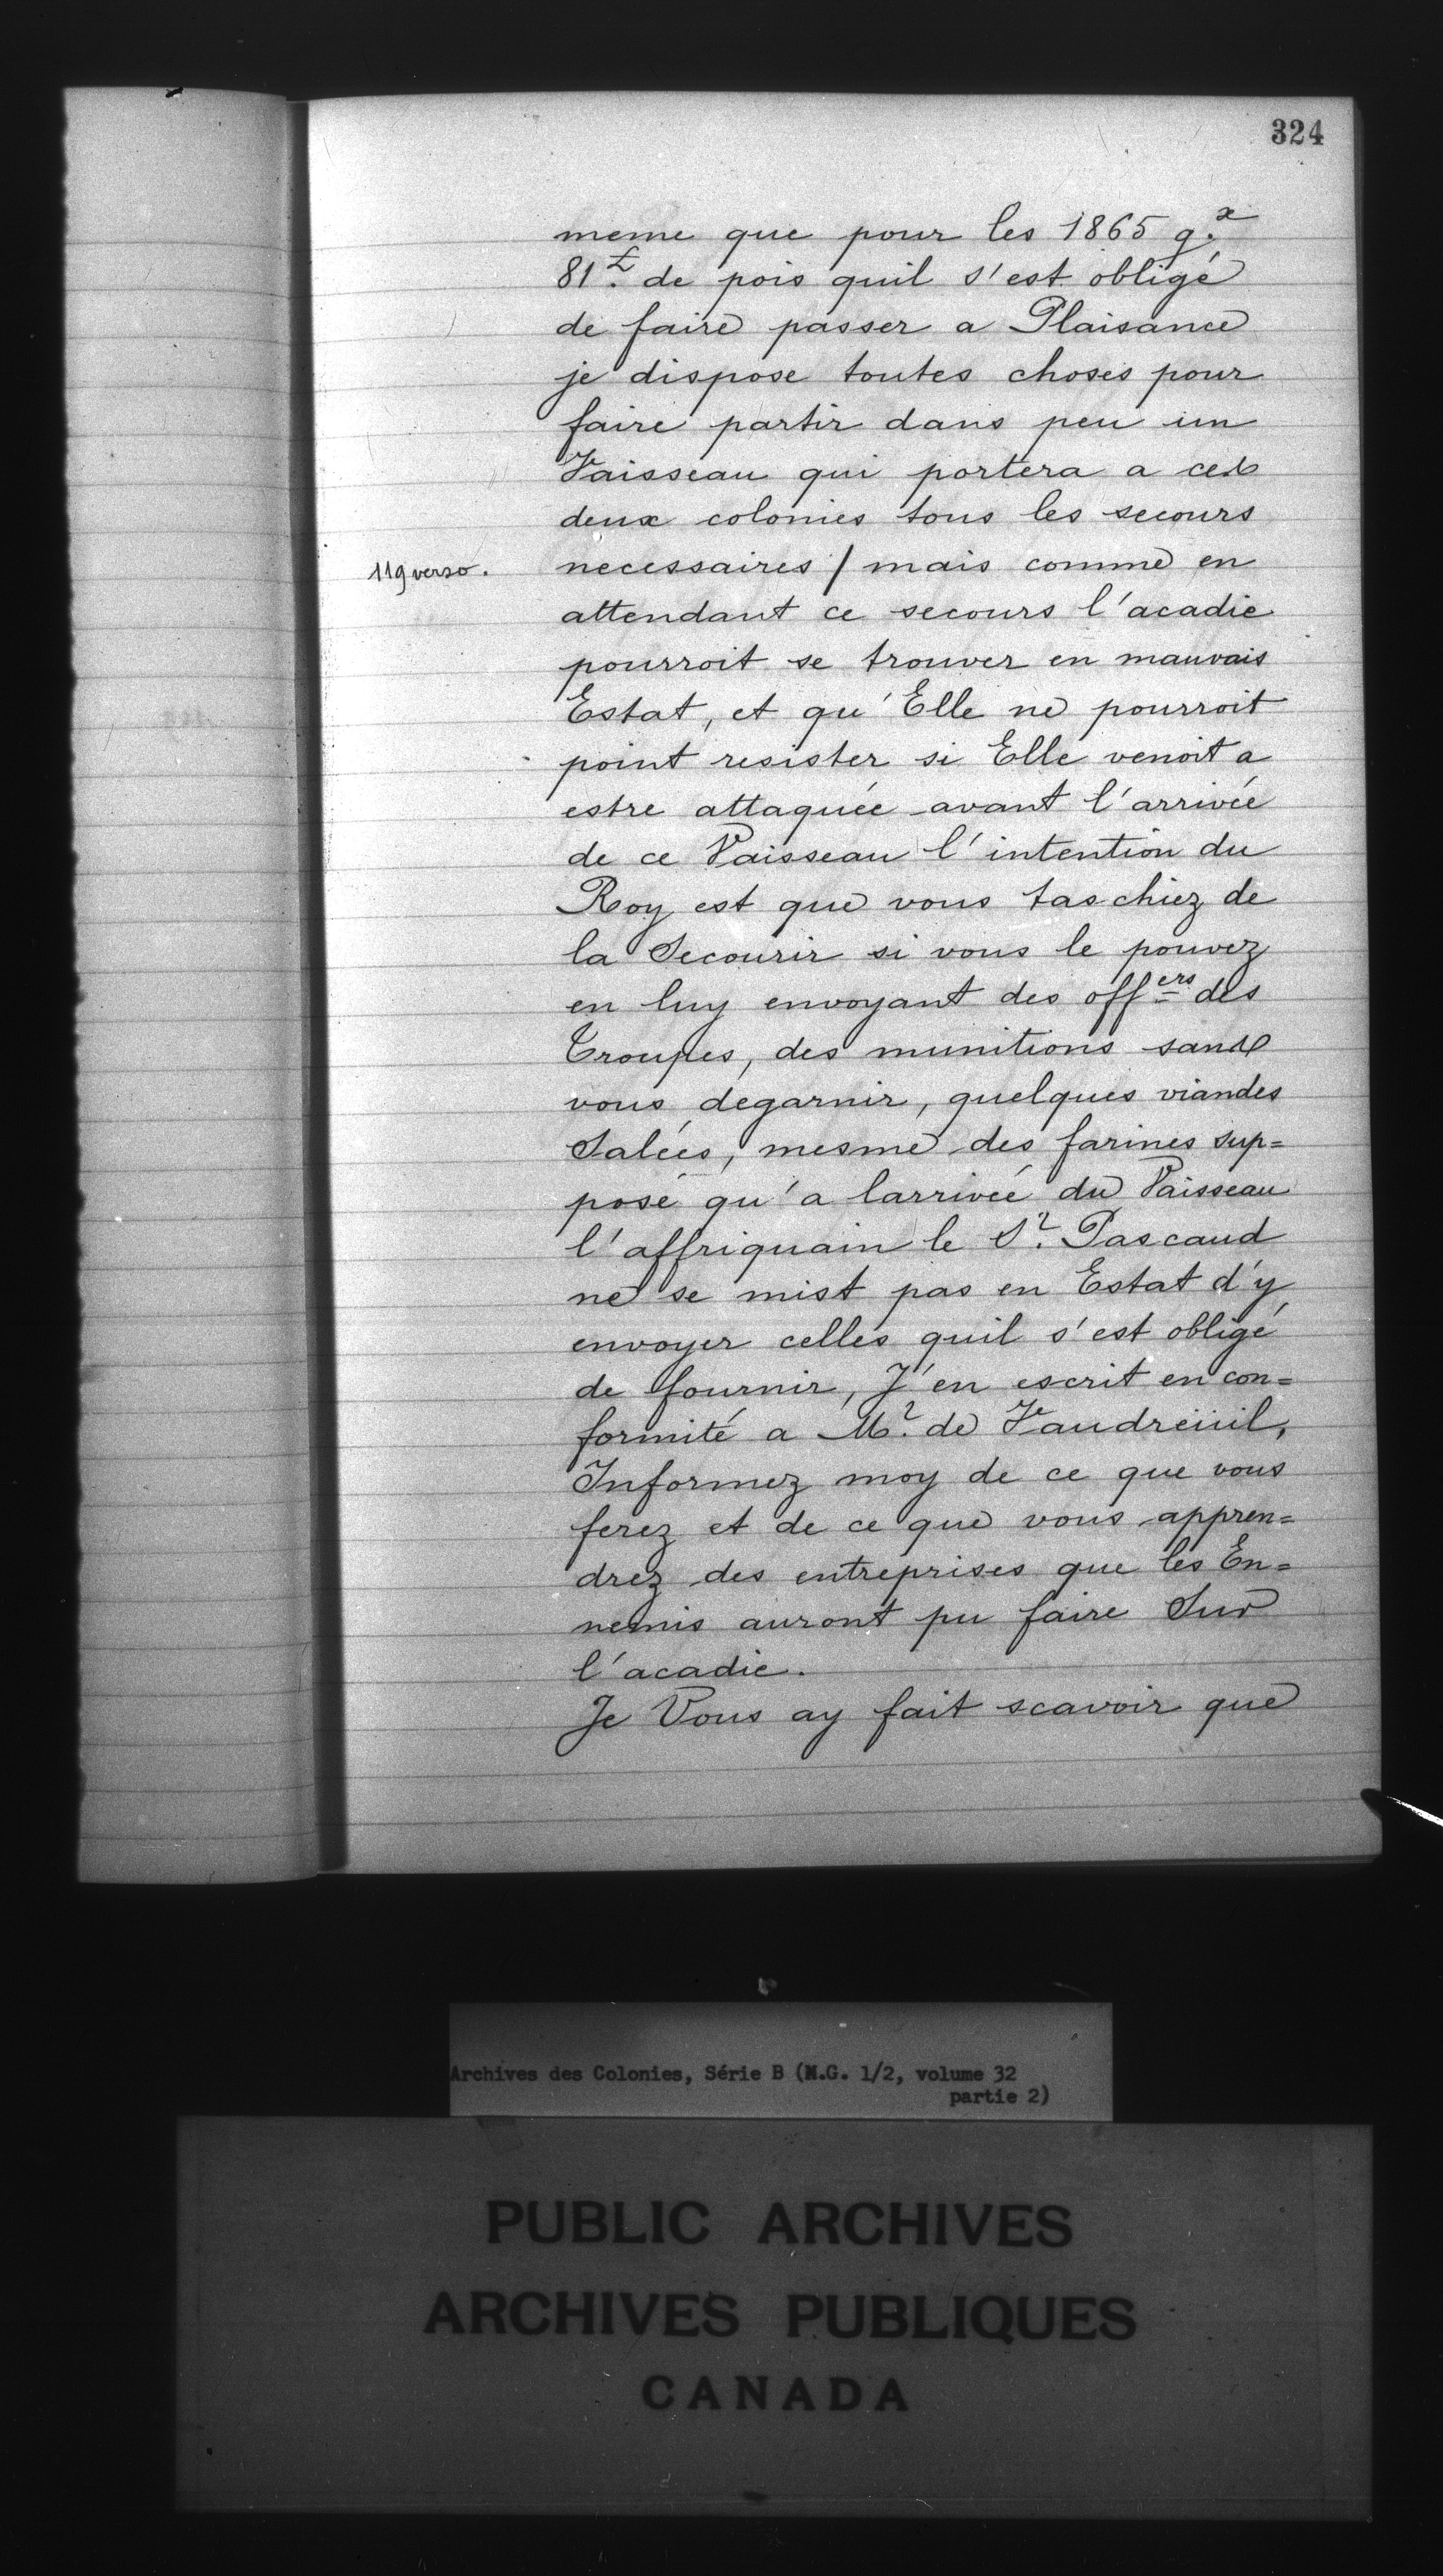 324
meme que pour les 1865 q.x
81.£ de pois quil s'est obligé
de faire passer a Plaisance
je dispose toutes choses pour
faire partir dans peu un
Vaisseau qui portera a ces
deux colonies tous les secours
119 verso. necessaires / mais comme en
attendant ce secours l'acadie
pourroit se trouver en mauvais
Estat, et qu'Elle ne pourroit
point resister si Elle venoit a
estre attaquée avant l'arrivée
de ce Vaisseau l'intention du
Roy est que vous taschiez de
la Secourir si vous le pouvez
en luy envoyant des offers des
Troupes, des munitions sans
vous degarnir, quelques viandes
Salées, mesme des farines sup=
posé qu'a larrivée du Vaisseau
l'affriquain le Sr. Pascaud
ne se mist pas en Estat d'y
envoyer celles quil s'est obligé
de fournir, J'en escrit en con=
formité a Mr. de Vaudreüil,
Informez moy de ce que vous
ferez et de ce que vous appren=
drez des entreprises que les En=
nemis auront pu faire Sur
l'acadie.
Je Vous ay fait scavoir que
Archives des Colonies, Série B (M.G. 1/2, volume 32
partie 2)
PUBLIC ARCHIVES
ARCHIVES PUBLIQUES
CANADA